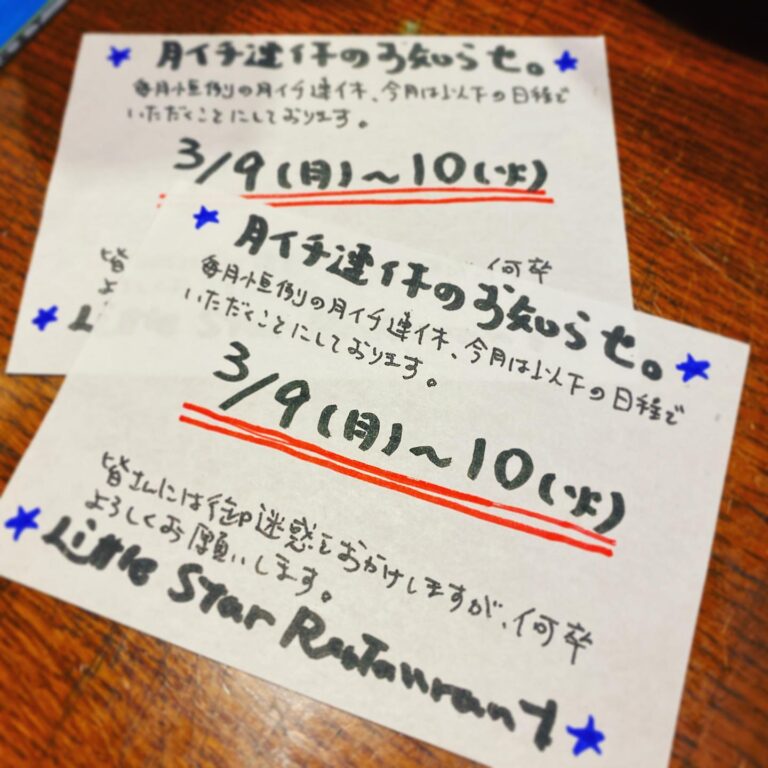 月イチ連休のお知らせ。
毎月恒例の月イチ連休、今月は以下の日程で
いただくことにしております。
3/9(月)~10(火)
何幹
皆
よ
L
月イチ連休のお知らせ。
毎月恒例の月イチ連休、今月は以下の日程で
いただくことにしております。
3/9(月)~10(火)
皆さんには御迷惑をおかけしますが、何幹
よろしくお願いします。
Little Star Restaurant